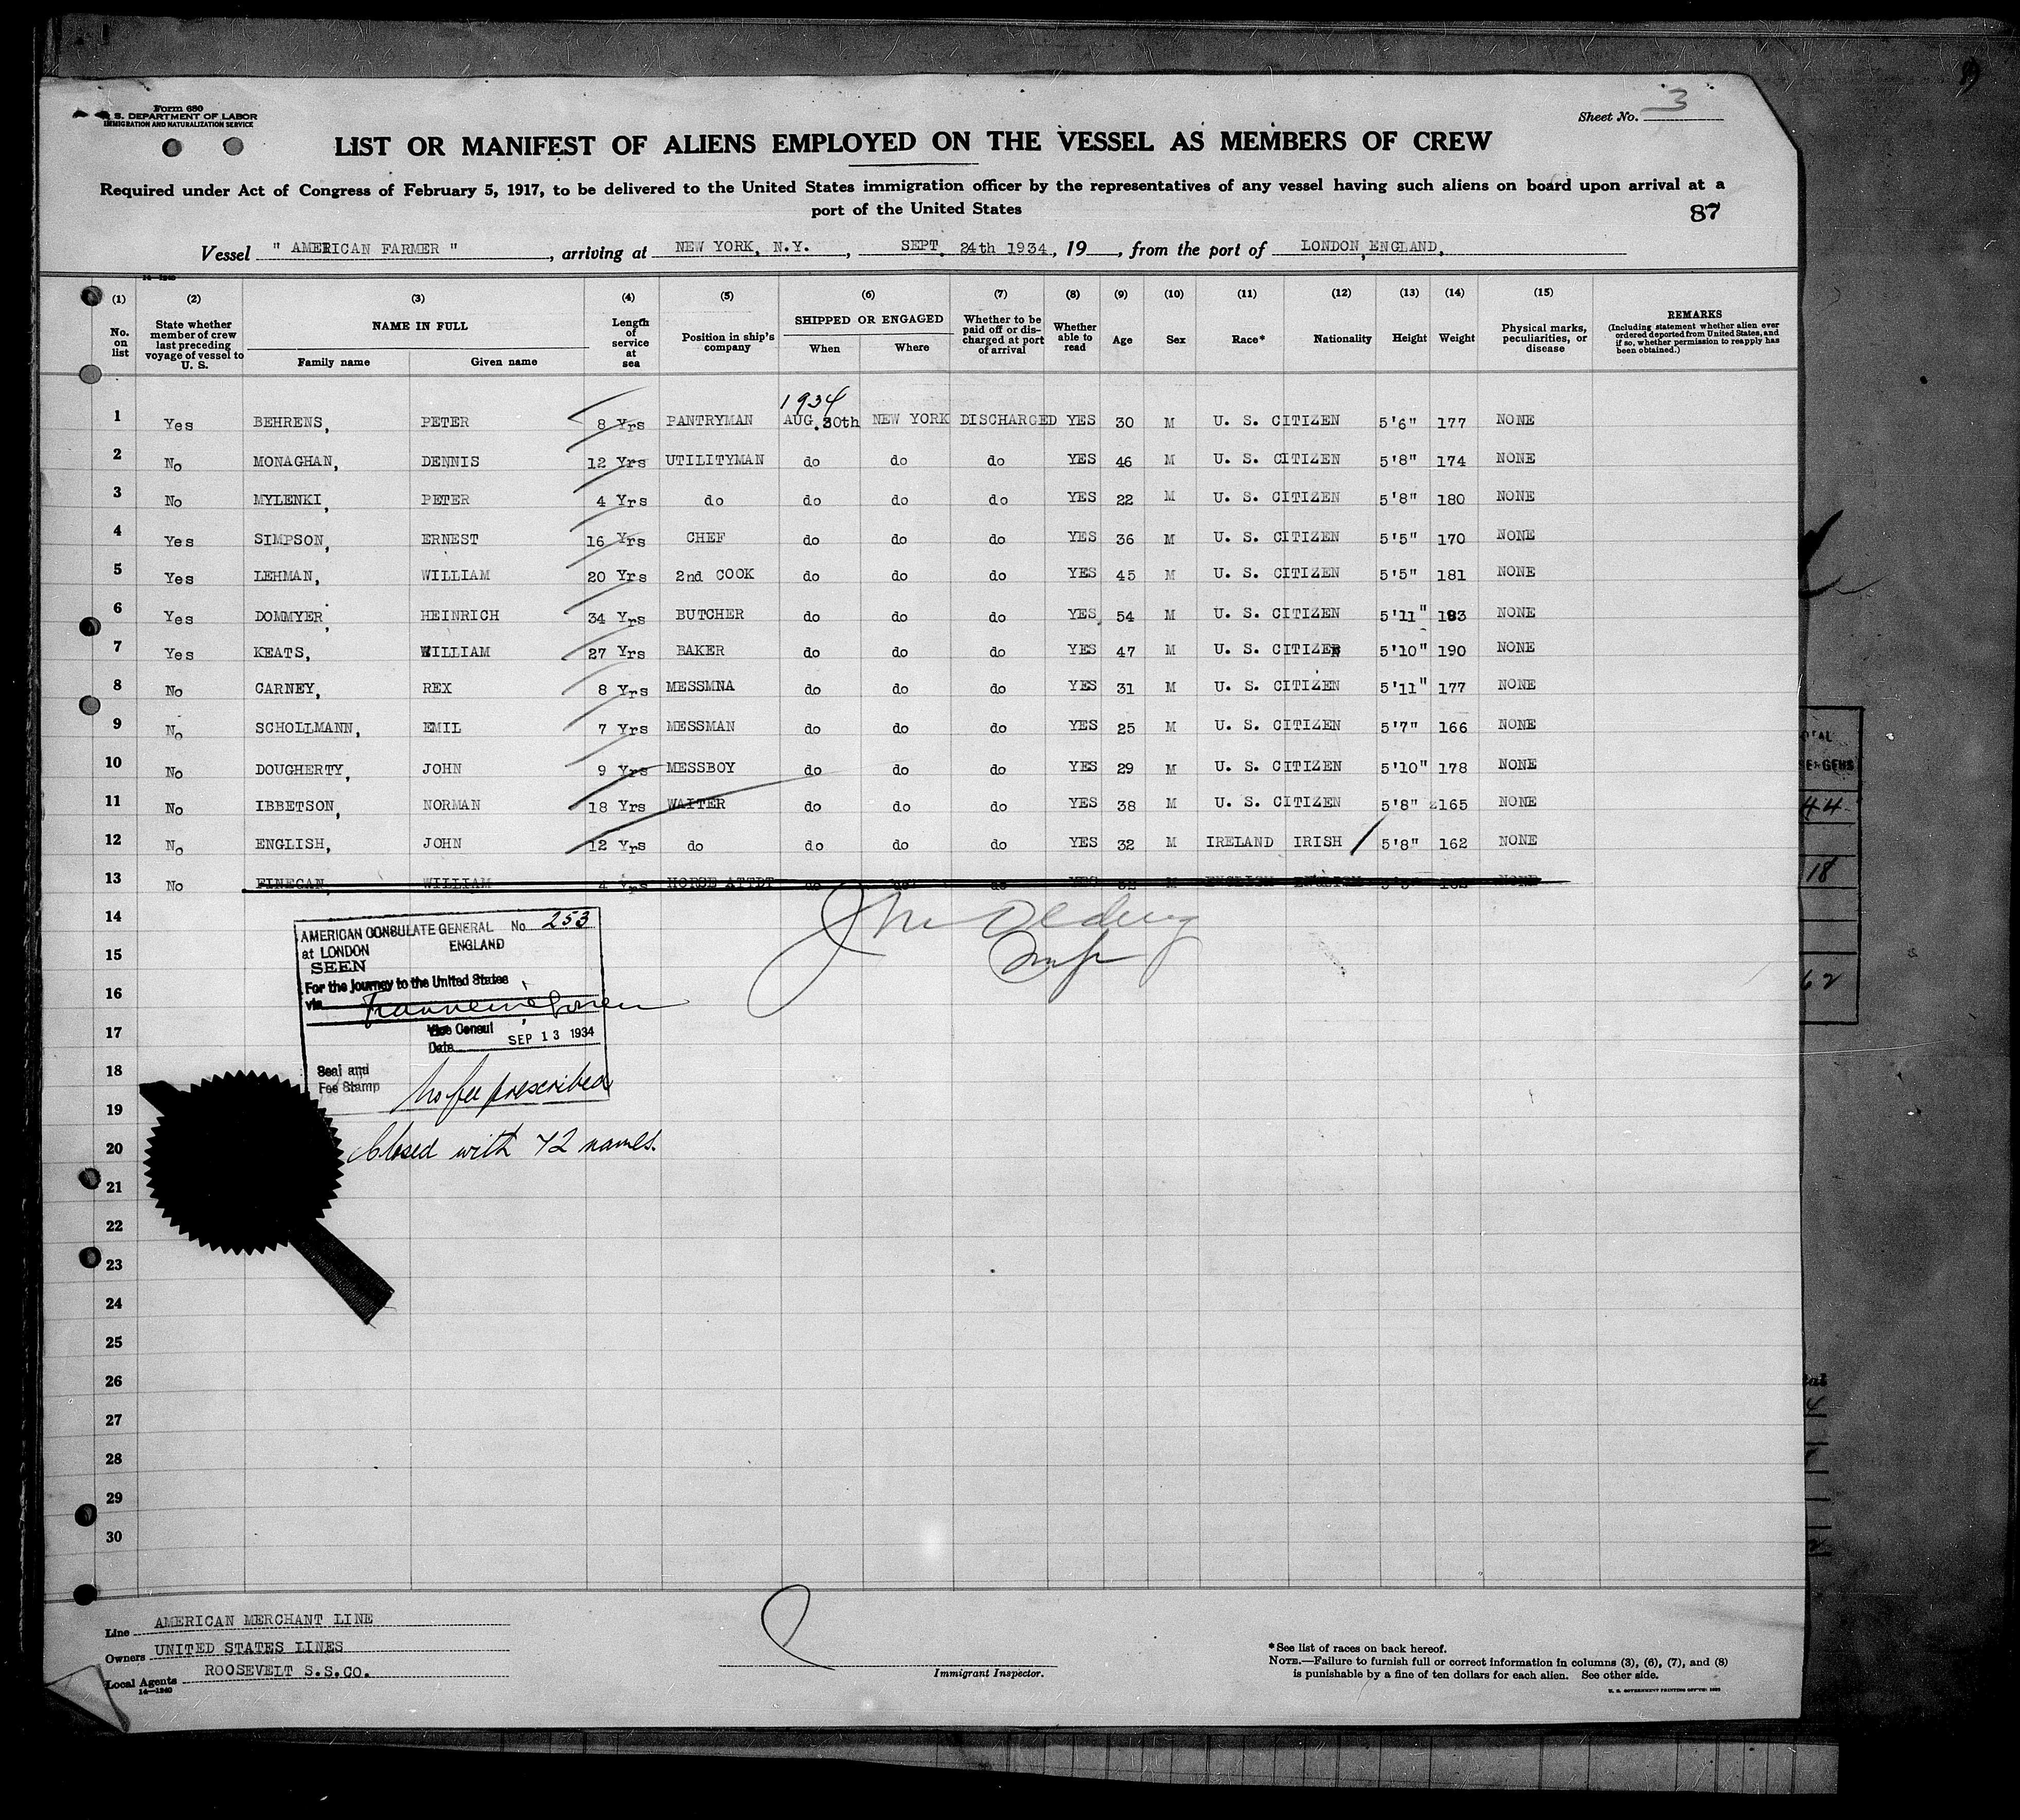 Form 680
S. DEPARTMENT OF LABOR
IMMIGRATION AND NATURALIZATION SERVICE
Sheet No. 3
LIST OR MANIFEST OF ALIENS EMPLOYED ON THE VESSEL AS MEMBERS OF CREW
Required under Act of Congress of February 5, 1917, to be delivered to the United States immigration officer by the representatives of any vessel having such aliens on board upon arrival at a
port of the United States
87
Vessel " AMERICAN FARMER ", arriving at NEW YORK, N.Y., SEPT. 24th 1934, 19, from the port of LONDON, ENGLAND,
14—1240
(1) (2) (3) (4) (5) (6) (7) (8) (9) (10) (11) (12) (13) (14) (15)
No. on list
State whether member of crew last preceding voyage of vessel to U. S.
NAME IN FULL
Family name Given name
Length of service at sea
Position in ship's company
SHIPPED OR ENGAGED
When Where
Whether to be paid off or discharged at port of arrival
Whether able to read
Age Sex Race* Nationality Height Weight
Physical marks, peculiarities, or disease
REMARKS
(Including statement whether alien ever ordered deported from United States, and if so, whether permission to reapply has been obtained.)
1934
1 Yes BEHRENS, PETER 8 Yrs PANTRYMAN AUG. 30th NEW YORK DISCHARGED YES 30 M U. S. CITIZEN 5'6" 177 NONE
2 No MONAGHAN, DENNIS 12 Yrs UTILITYMAN do do do YES 46 M U. S. CITIZEN 5'8" 174 NONE
3 No MYLENKI, PETER 4 Yrs do do do do YES 22 M U. S. CITIZEN 5'8" 180 NONE
4 Yes SIMPSON, ERNEST 16 Yrs CHEF do do do YES 36 M U. S. CITIZEN 5'5" 170 NONE
5 Yes LEHMAN, WILLIAM 20 Yrs 2nd COOK do do do YES 45 M U. S. CITIZEN 5'5" 181 NONE
6 Yes DOMMYER, HEINRICH 34 Yrs BUTCHER do do do YES 54 M U. S. CITIZEN 5'11" 183 NONE
7 Yes KEATS, WILLIAM 27 Yrs BAKER do do do YES 47 M U. S. CITIZEN 5'10" 190 NONE
8 No CARNEY, REX 8 Yrs MESSMNA do do do YES 31 M U. S. CITIZEN 5'11" 177 NONE
9 No SCHOLLMANN, EMIL 7 Yrs MESSMAN do do do YES 25 M U. S. CITIZEN 5'7" 166 NONE
10 No DOUGHERTY, JOHN 9 Yrs MESSBOY do do do YES 29 M U. S. CITIZEN 5'10" 178 NONE
11 No IBBETSON, NORMAN 18 Yrs WAITER do do do YES 38 M U. S. CITIZEN 5'8" 165 NONE
12 No ENGLISH, JOHN 12 Yrs do do do do YES 32 M IRELAND IRISH 5'8" 162 NONE
13 No FINEGAN, WILLIAM 4 Yrs HORSE ATTDT do do do YES M ENGLISH ENGLISH NONE
14
15
16
17
18
19
20
21
22
23
24
25
26
27
28
29
30
AMERICAN CONSULATE GENERAL No. 253
at LONDON ENGLAND
SEEN
For the journey to the United States
via
Vice Consul
Date SEP 13 1934
Seal and
Fee Stamp
No fee prescribed
Closed with 72 names.
Line AMERICAN MERCHANT LINE
Owners UNITED STATES LINES
Local Agents ROOSEVELT S.S.CO.
14—1240
Immigrant Inspector.
*See list of races on back hereof.
NOTE.—Failure to furnish full or correct information in columns (3), (6), (7), and (8)
is punishable by a fine of ten dollars for each alien. See other side.
44
18
62